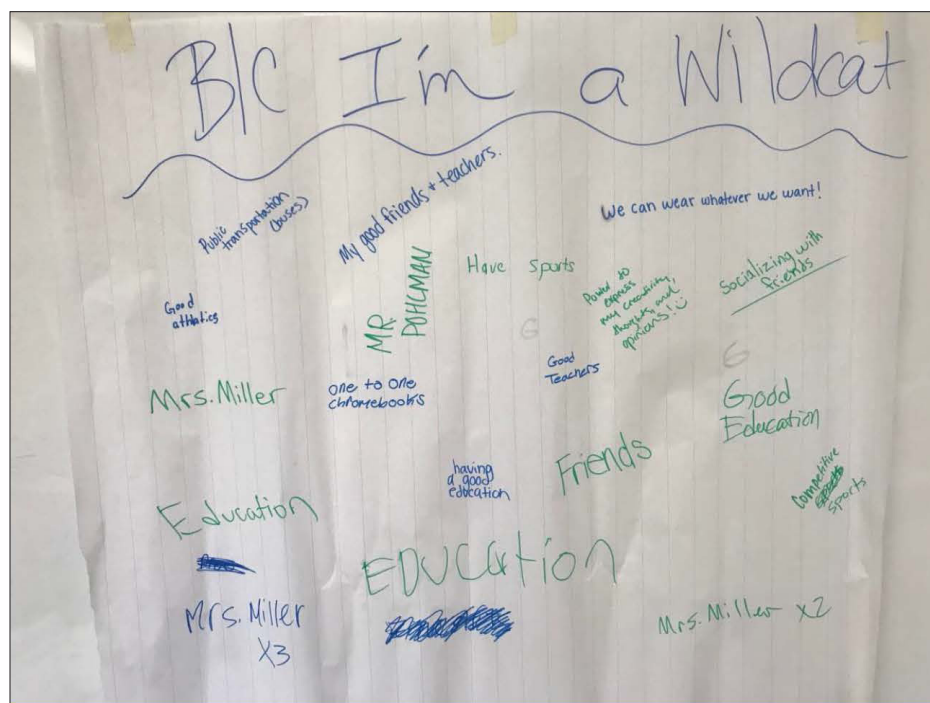 B/C I'm a Wildcat
Public
transportation
(buses)
My good friends + teachers.
We can wear whatever we want!
Good
athletics
MR.
POHLMAN
Have Sports
Power to
express
my creativity,
thoughts, and
opinions! :)
Socializing with
friends
G
G
Mrs. Miller
one to one
chromebooks
Good
Teachers
Good
Education
having
a good
education
Friends
Competitive
sports
Education
EDUCAtion
Mrs. Miller
X3
Mrs. Miller X2